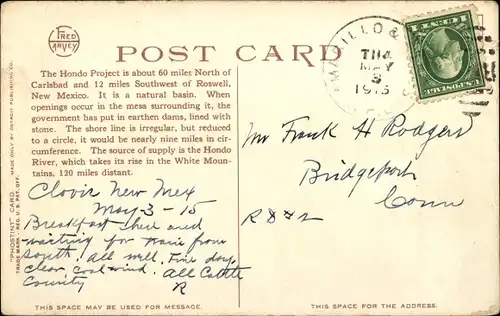 FRED HARVEY
POST CARD
The Hondo Project is about 60 miles North of
Carlsbad and 12 miles Southwest of Roswell,
New Mexico. It is a natural basin. When
openings occur in the mesa surrounding it, the
government has put in earthen dams, lined with
stone. The shore line is irregular, but reduced
to a circle, it would be nearly nine miles in cir-
cumference. The source of supply is the Hondo
River, which takes its rise in the White Moun-
tains, 120 miles distant.
"PHOSTINT" CARD. MADE ONLY BY DETROIT PUBLISHING CO.
TRADE MARK - REG. U.S. PAT. OFF.
Clovis New Mex
May-3-15
Breakfast here and
waiting for train from
south. All well. Fine day
clear, cool wind. All Cattle
County
R
THIS SPACE MAY BE USED FOR MESSAGE.
AMARILLO &
MAY
3
1915
Mr Frank H Rodgers
Bridgeport
Conn
THIS SPACE IS FOR THE ADDRESS.